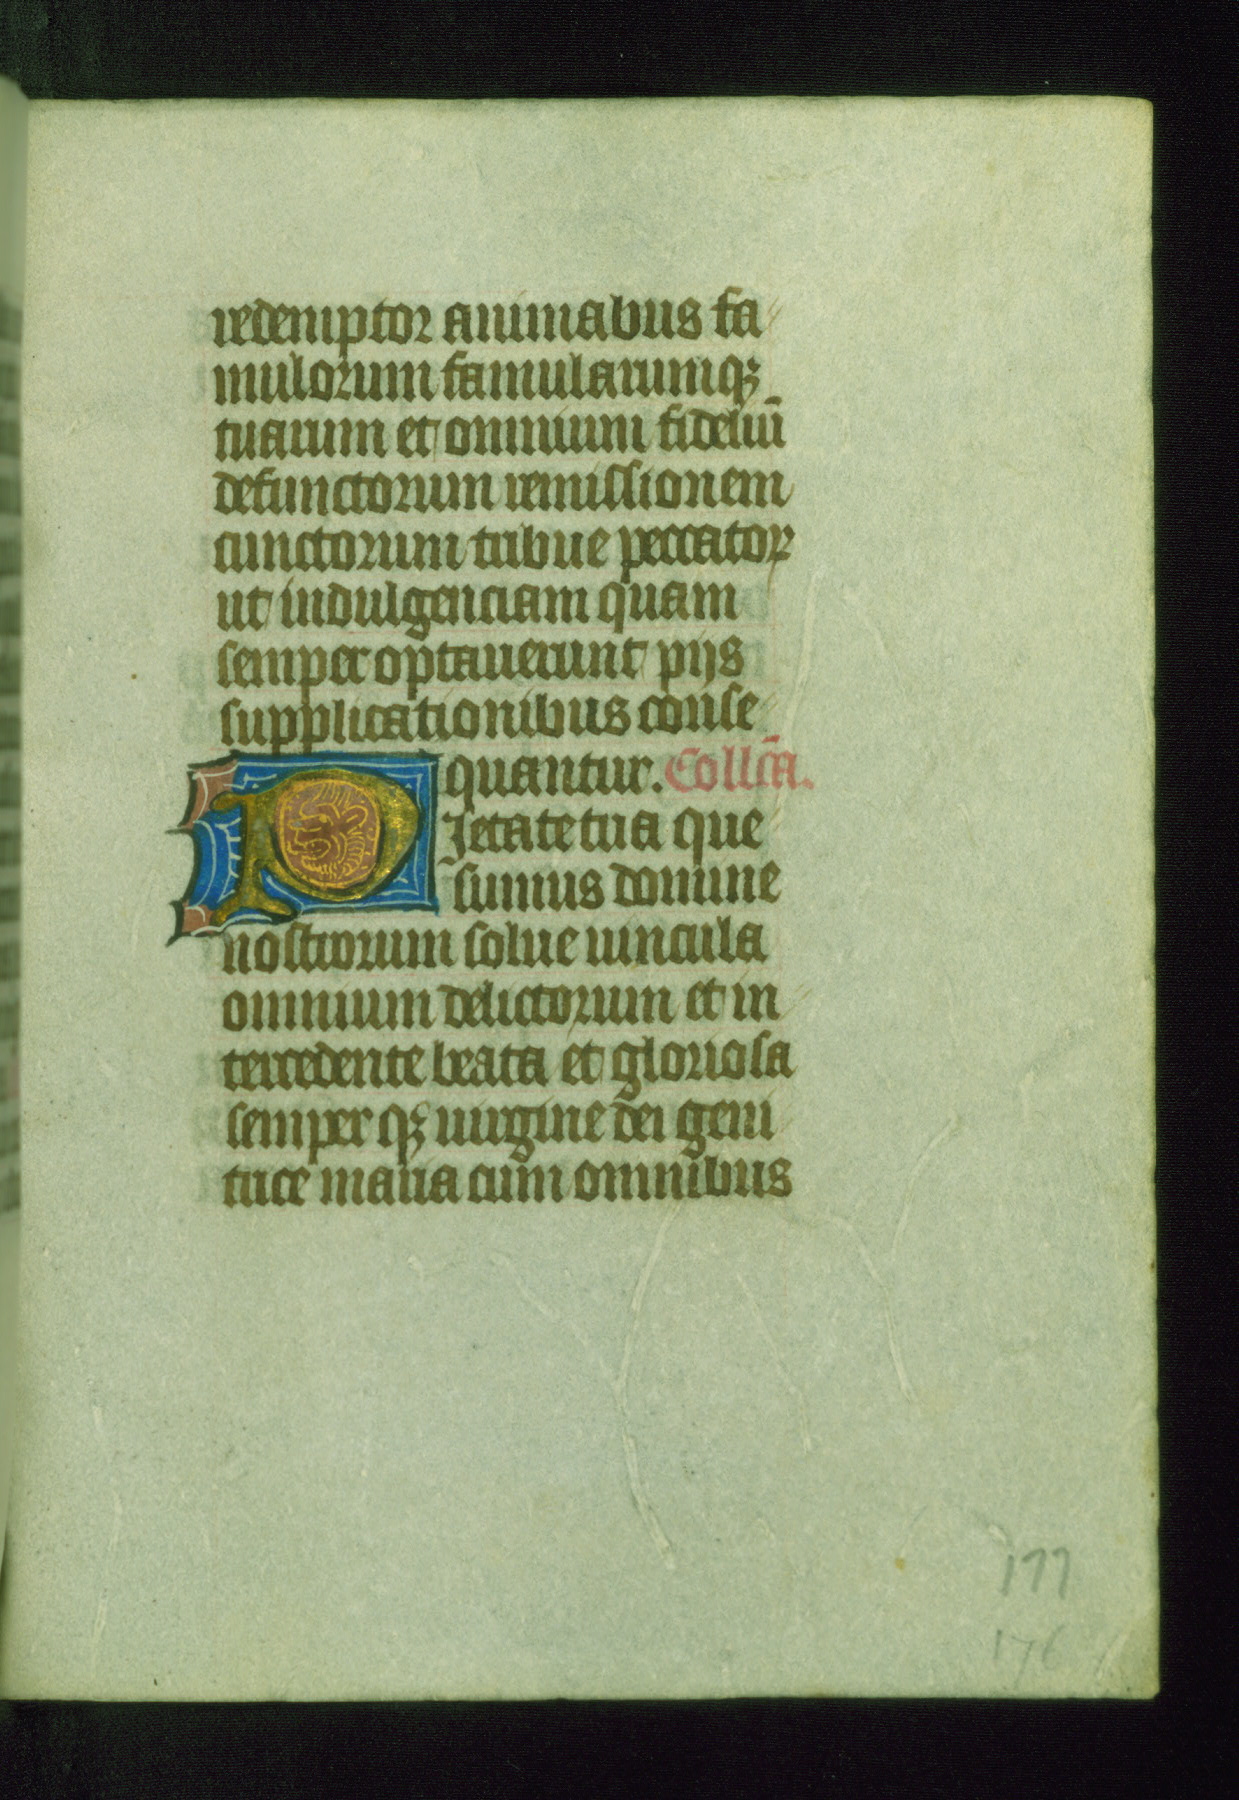 redemptor animabus fa
mulorum famularumqꝫ
tuarum et omnium fideliū
defunctorum remissionem
cunctorum tribue peccatoꝝ
ut indulgenciam quam
semper optauerunt pijs
supplicationibus conse
quantur. Collc̄a.
PIetate tua que
sumus domine
nostrorum solue uincula
omnium delictorum et in
tercedente beata et gloriosa
semper qꝫ uirgine dei geni
trice maria cum omnibus
177
176